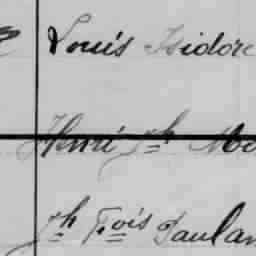 Louis Isidore
Henri Jh Mo
Jh Fois Paulan